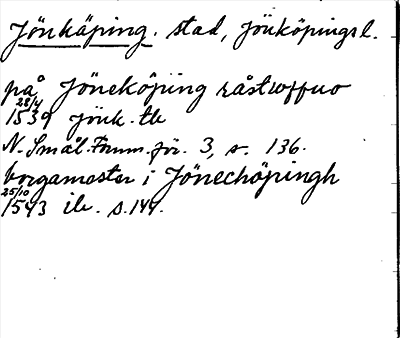 Jönköping. stad, Jönköpings l.
på Jöneköping råstwffuo
28/4
1539 Jönk. tb
N. Smål. Fornm. för. 3, s. 136.
borgamester i Jönechöpingh
25/10
1543 ib. s. 144.